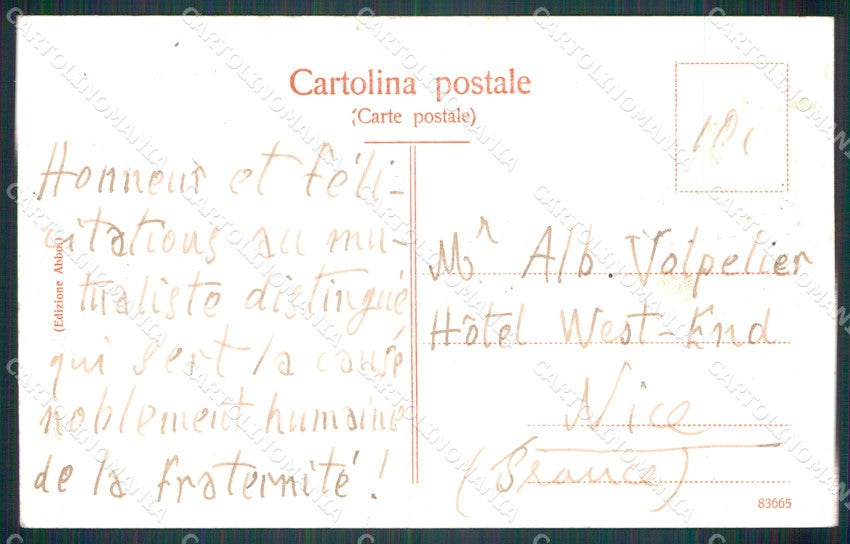 Cartolina postale
(Carte postale)
Honneur et féli-
citations au mu-
tualiste distingué
qui sert la cause
noblement humaine
de la fraternité !
(Edizione Abbo.)
Mr Alb. Volpelier
Hôtel West-End
Nice
(France)
83665
CARTOLINOMANIA